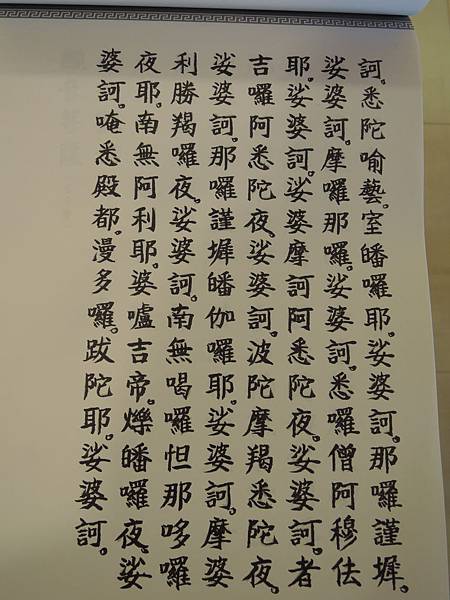 訶。悉陀喻藝。室皤囉耶。娑婆訶。那囉謹墀。
娑婆訶。摩囉那囉。娑婆訶。悉囉僧阿穆佉
耶。娑婆訶。娑婆摩訶阿悉陀夜。娑婆訶。者
吉囉阿悉陀夜。娑婆訶。波陀摩羯悉陀夜。
娑婆訶。那囉謹墀皤伽囉耶。娑婆訶。摩婆
利勝羯囉夜。娑婆訶。南無喝囉怛那哆囉
夜耶。南無阿利耶。婆嚧吉帝。爍皤囉夜。娑
婆訶。唵悉殿都。漫多囉。跋陀耶。娑婆訶。